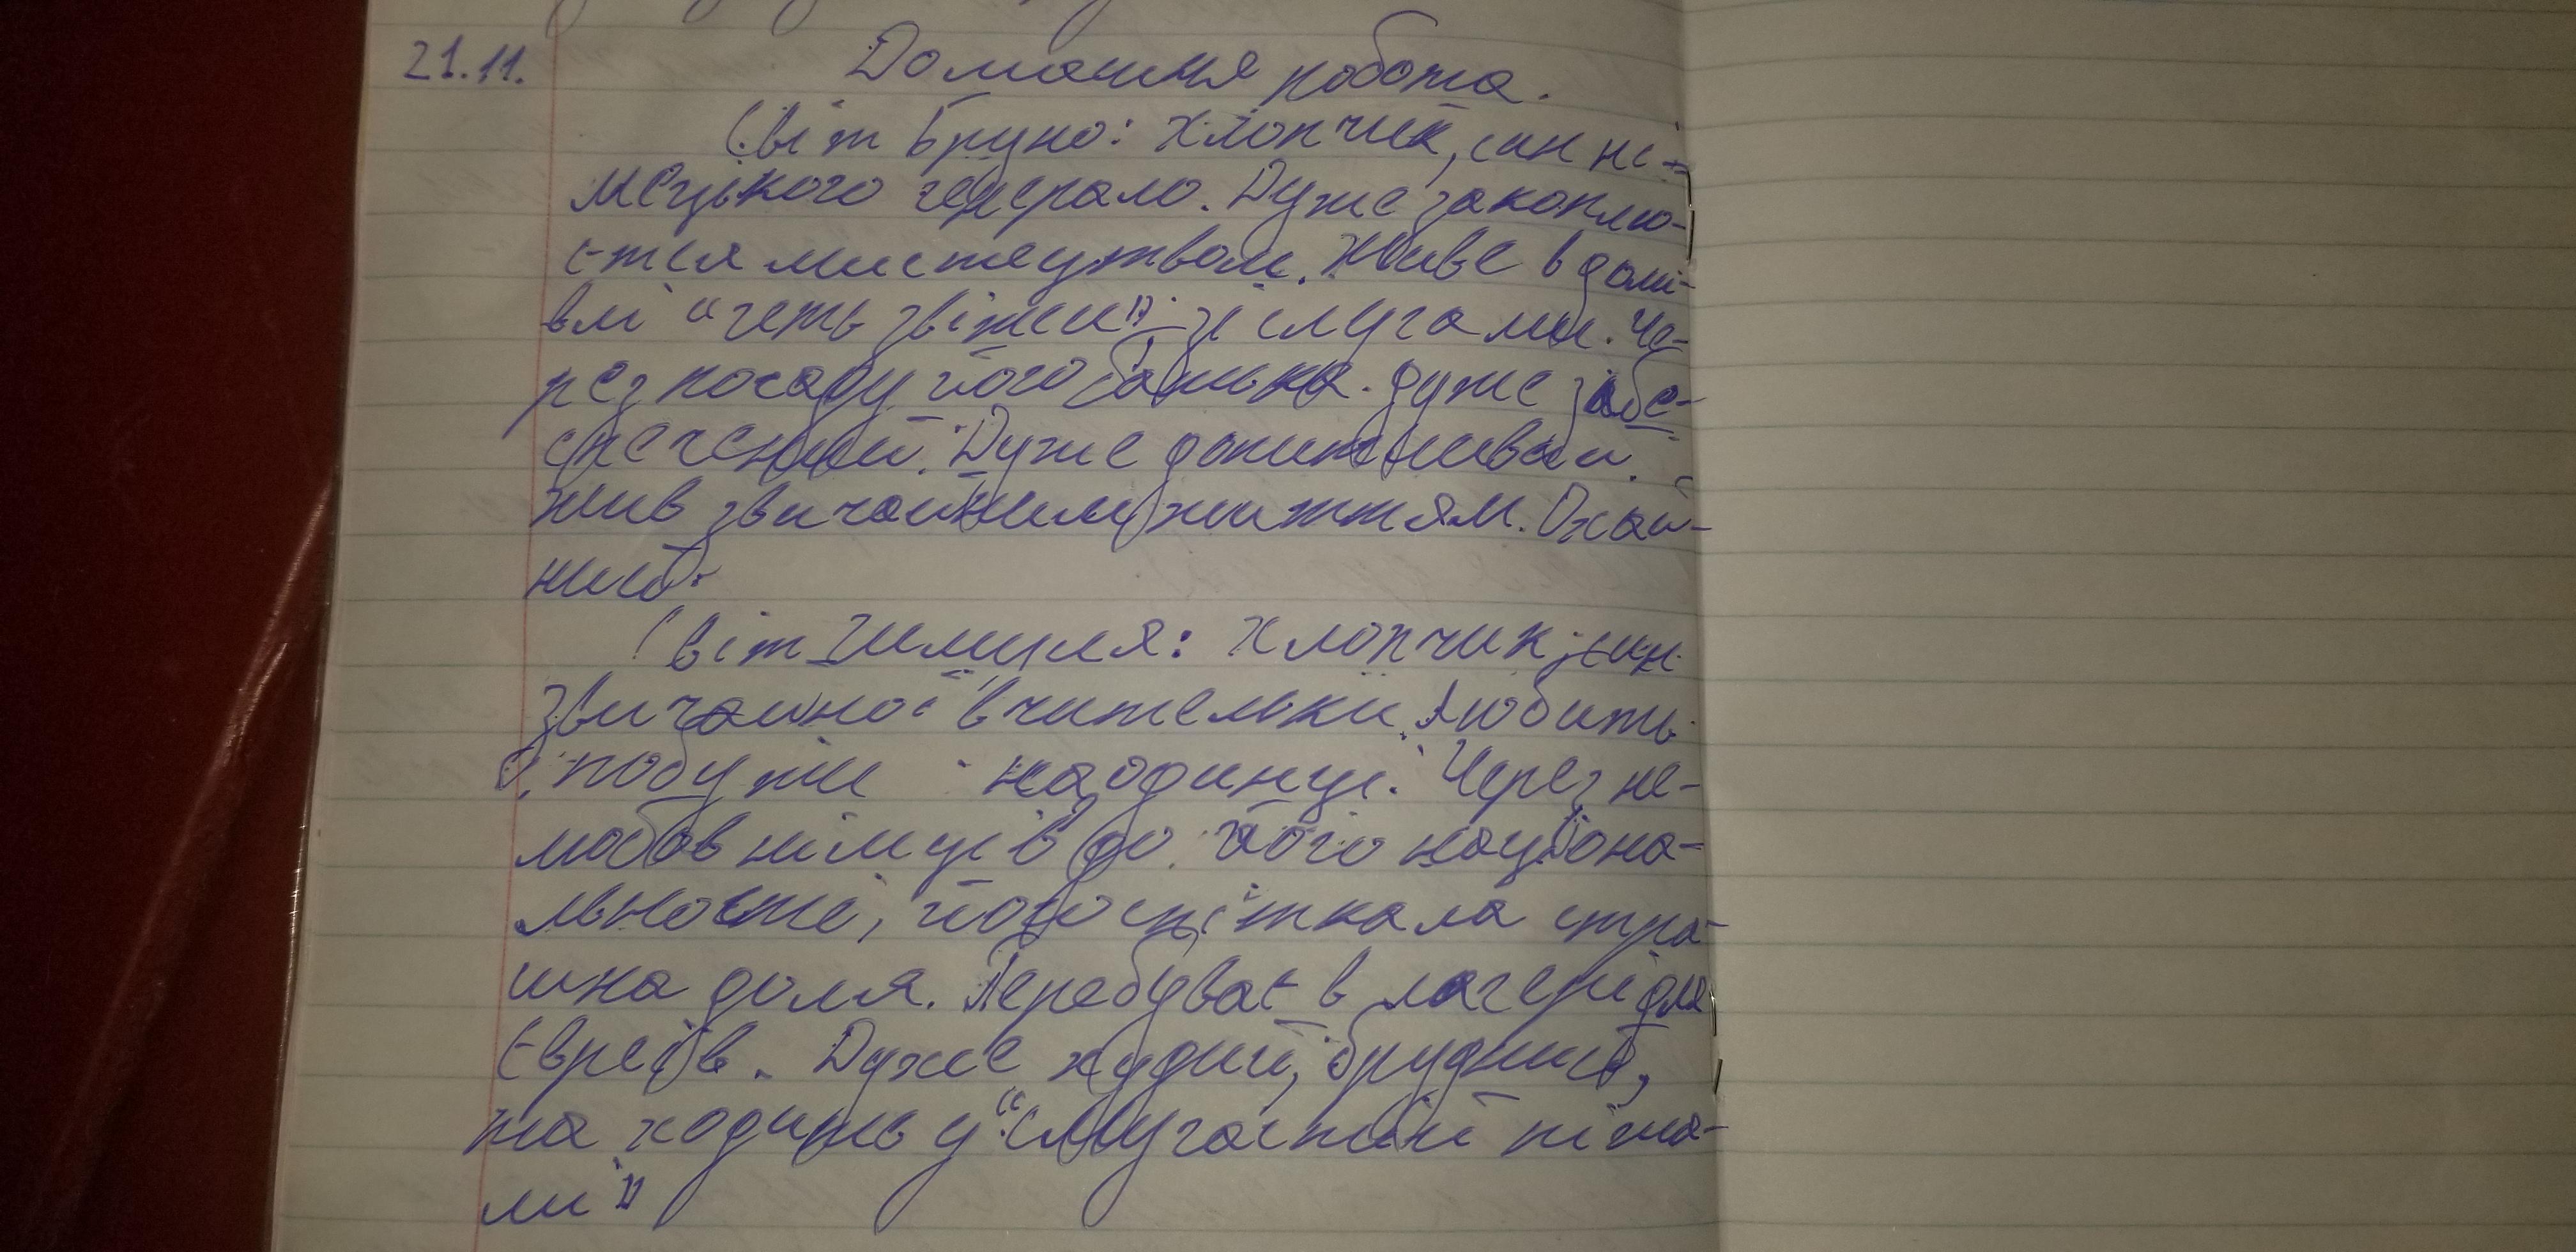 21.11. Домашня робота.
Світ Бруно: Хлопчик, син ні-
мецького генерала. Дуже захоплю-
ється мистецтвом. Живе в домі-
влі "геть звітси" зі слугами. Че-
рез посаду його батька дуже забе-
зпечений. Дуже допитливий.
Жив звичайним життям. Охай-
ний.
Світ Шмуля: Хлопчик, син
звичайної вчительки. Любить
побути наодинці. Через не-
любов німців до його націона-
льності, його спіткала стра-
шна доля. Перебуває в лагері для
євреїв. Дуже худий, брудний,
та ходить у "смугастій піжа-
мі"